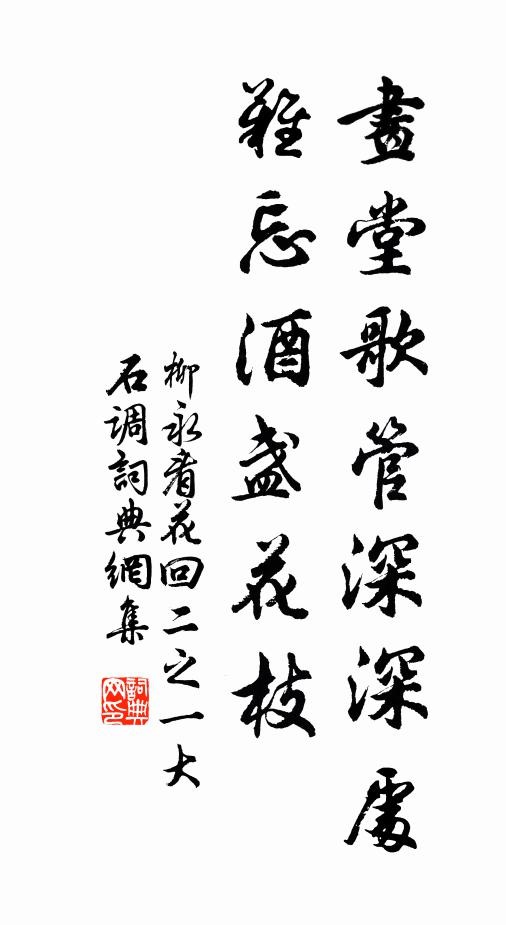 畫堂歌管深深處
難忘酒盞花枝
柳永看花回二之一大
石调詞典網集
詞典
网印